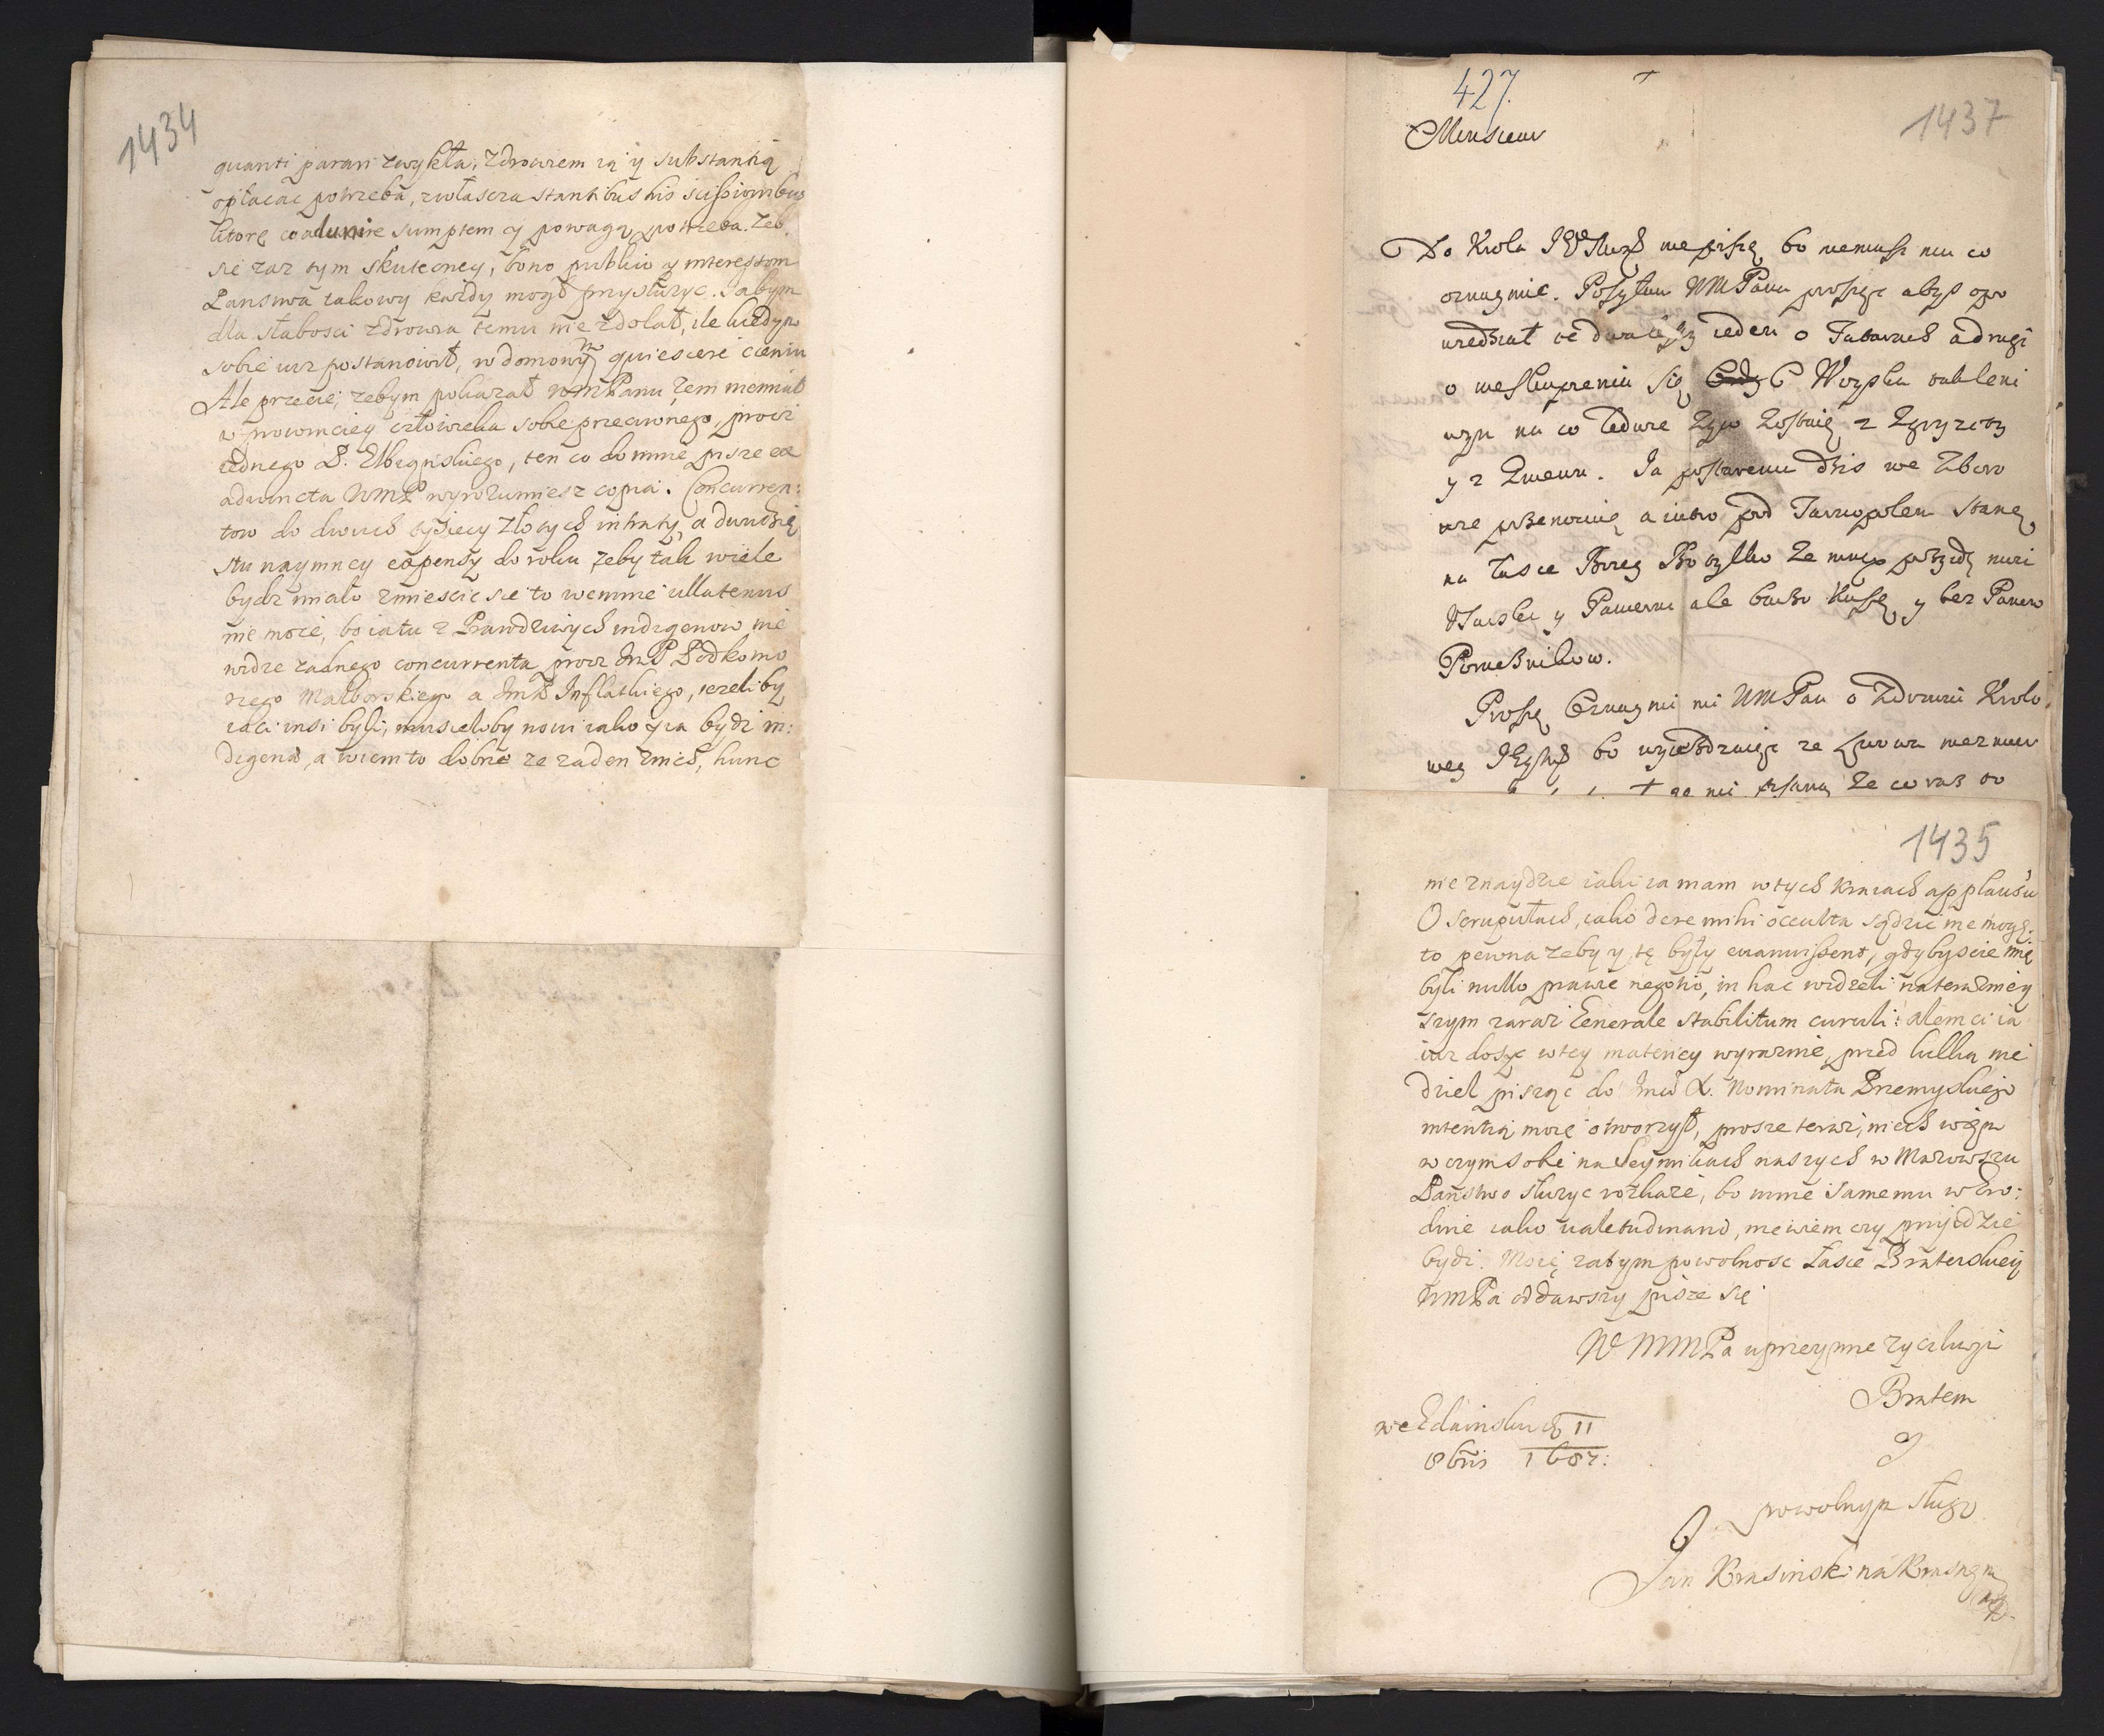 1434
quanti paravi zwykła, zdrowiem ią y substantią
opłacac potrzeba, zwłaszcza stantibus his scissionibus
ktorę coadunire sumptem cy powagą potrzeba. Zeb.
się zas tym skuteczney, bono publico y interessom
Panstwa takowy kazdy mogł przysłuzyc. Jabym
dla słabosci zdrowia temu nie zdołał, ile kiedym
sobie iuz postanowił, w domowym quiescere cieniu
Ale przecie, zebym pokazał WMPanu, zem niemiał
w prowinciey człowieka sobie przeciwnego, procz
iednego P. Elbigskiego, ten co do mnie pisze ex
adiuncta WMP wyrozumiesz copia. Concurren:
tow do dwuch tysiecy złotych intraty, a dwudzie
stu naymniey expensy do roku zeby tak wiele
bydz miało zmiescic sie to wemnie ullatenus
nie moze, bo iatu z Prawdziwych indigenow nie
widze zadnego concurrenta procz JmP Podkomo
rzego Malborskiego a JmP Inflatskiego, iezeliby
iaci insi byli, musieliby nowi iako y ia bydz in:
digena, a wiem to dobrze ze zaden znich, hunc
427.
1437
Monsieur
Do Krola JEo Mosci nie piszę bo niemasz nic co
oznaymic. Posyłam WMPanu proszęc abys opo
wiedział te dwa ięzy ieden o Tatarach a drugi
o nieskupieniu się C Woyska takleni
uzyn na co ledwie zyw zostaię z Zgryzoty
y z Gniewu. Ja postaremu dzis we Zboro
wie przenocuię a iutro pod Tarnopolem stanę
na łasce Bozey Bo tylko ze mną przyidą nuri
Woiska y Panerni ale barzo kuse y bez Panow
Porucznikow.
Proszę Oznaymi mi WMPan o zdrowiu Krolo
wey JEy Mci bo wyiezdzaięc ze Lwowa
ze coraz to
1435
nie znaydzie iaki ia mam w tych kraiach applausu
O scrupułach, iako de re mihi occulta sądzic nie mogę.
to pewna zeby y tę były evanuissent, gdybyscie mię
byli nullo prawie negotio, in hac widzieli na terazniey
szym zaraz Generale stabilitum curuli: alem ci ia
iuz dosyc w tey materiey wyraznie, przed kilką nie
dziel pisząc do Jmci X. Nominata Przemyskiego
intentią moię otworzył, prosze teraz, niech wiem
w czym sobie na Seymikach naszych w Mazowszu
Panstwo słuzyc rozkaże, bo mnie samemu w Gro:
dnie iako valetudinario, niewiem czy przyidzie
bydz. Moię zatym powolnosc łasce Braterskiey
WMPa oddawszy pisze się
W MMPa uprzeymie zyczliwym
Bratem
we Gdainsku d 11
8bris 1687:
y
powolnym sługą
Jan Krasinski na Krasnym